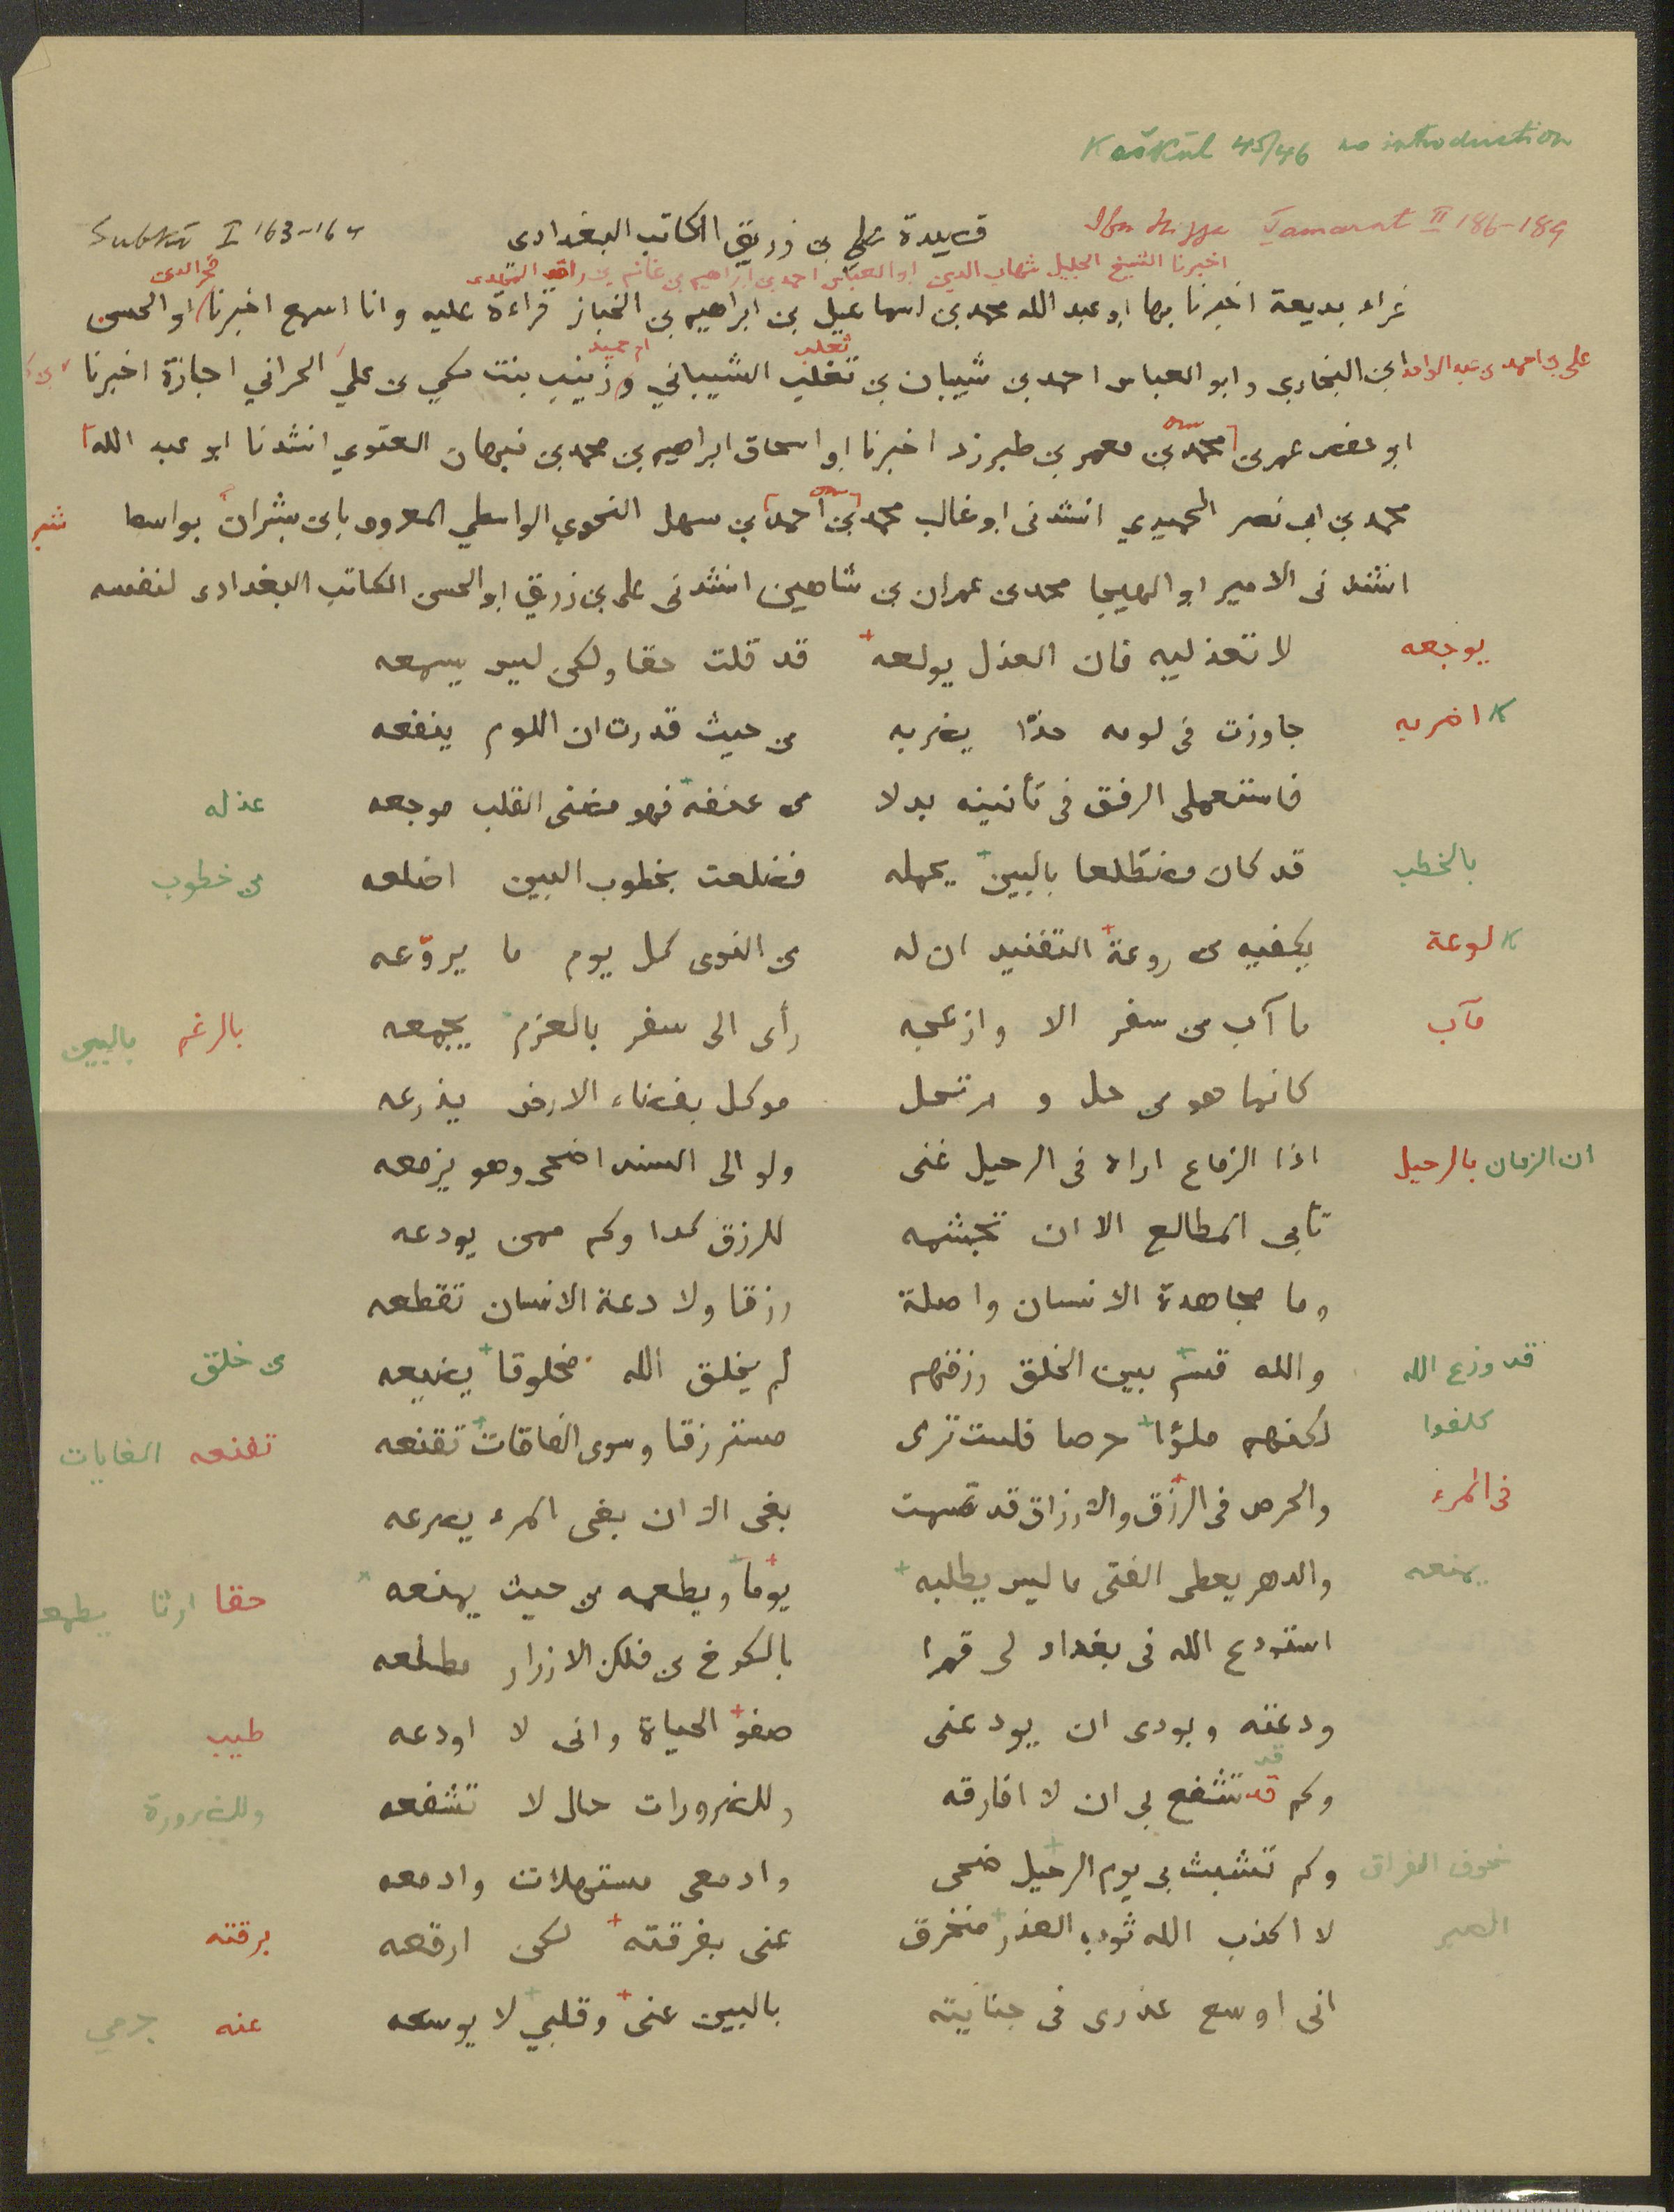 Kaškūl 45/46 no introduction
Subkī I 163-164 قصيدة علي بن زريق الكاتب البغدادى Ibn Higga Tamarat II 186-189
اخبرنا الشيخ الجليل شهاب الدين ابو العباس احمد بن ابراهيم بن غانم بن
فخر الدين
غراء بديعة اخبرنا بها ابو عبد الله محمد بن اسماعيل بن ابراهيم بن الخباز قراءة عليه وانا اسمع اخبرنا ابو الحسن
ثعلب ام حميد
على بن احمد بن عبد الواحد ابن البخارى وابو العباس احمد بن شيبان بن تغلب الشيباني وزينب بنت مكي بن علي الحراني اجازة اخبرنا
ابو حفص عمر بن [محمد بن] معمر بن طبرزد اخبرنا ابو اسحاق ابراهيم بن محمد بن نبهان الغنوي انشدنا ابو عبد الله
محمد بن ابى نصر الحميدي انشدنى ابو غالب محمد [بن احمد] بن سهل النحوي الواسطي المعروف بابن بشران بواسط
انشدنى الامير ابو الهيجا محمد بن عمران بن شاهين انشدنى على بن زريق ابو الحسن الكاتب البغدادى لنفسه
يوجعه لا تعذليه فان العذل يولعه + قد قلت حقا ولكن ليس يسمعه
K اضر به جاوزت فى لومه حدّا يضربه من حيث قدرت ان اللوم ينفعه
فاستعملى الرفق فى تأنيبه بدلا من عنفه + فهو مضنى القلب موجعه عذله
بالخطب قد كان مضطلعا بالبين + يحمله فضلعت بخطوب البين اضلعه من خطوب
K لوعة يكفيه من روعة + التفنيد ان له من النوى كل يوم ما يروّعه
فآب ما آب من سفر الا وازعجه رأى الى سفر بالعزم يجمعه بالرغم بالبين
كانما هو من حل و مرتحل موكل بفضاء الارض يذرعه
ان الزمان بالرحيل اذا الزماع اراه فى الرحيل غنى ولو الى السند اضحى وهو يزمعه
تأبى المطالع الا ان تجشمه للرزق كدا وكم ممن يودعه
وما مجاهدة الانسان واصلة رزقا ولا دعة الانسان تقطعه
قد وزع الله والله قسم + بين الخلق رزقهم لم يخلق الله مخلوقا + يضيعه من خلق
كلفوا لكنهم ملؤا + حرصا فلست ترى مسترزقا وسوى الفاقات + تقنعه تقنعه الغايات
فى المرء والحرص فى الرزق + والارزاق قد قسمت بغى الا ان بغى المرء يصرعه
يمنعه والدهر يعطى الفتى ما ليس يطلبه + يوما + ويطعمه من حيث يمنعه حقا ارثا
استودع الله فى بغداد لى قمرا بالكرخ من فلك الازرار مطلعه
ودعته وبودى ان يودعنى صفو + الحياة وانى لا اودعه طيب
قد
وكم قد تشفع بى ان لا افارقه وللضرورات حال لا تشفعه وللضرورة
خوف الفراق وكم تشبث بى يوم الرحيل + ضحى وادمعى مستهلات وادمعه
الصبر لا اكذب الله ثوب العذر + منخرق عنى بفرقته + لكن ارقعه برقته
انى اوسع عذرى فى جنايته بالبين عنى + وقلبي + لا يوسعه عنه جرمي